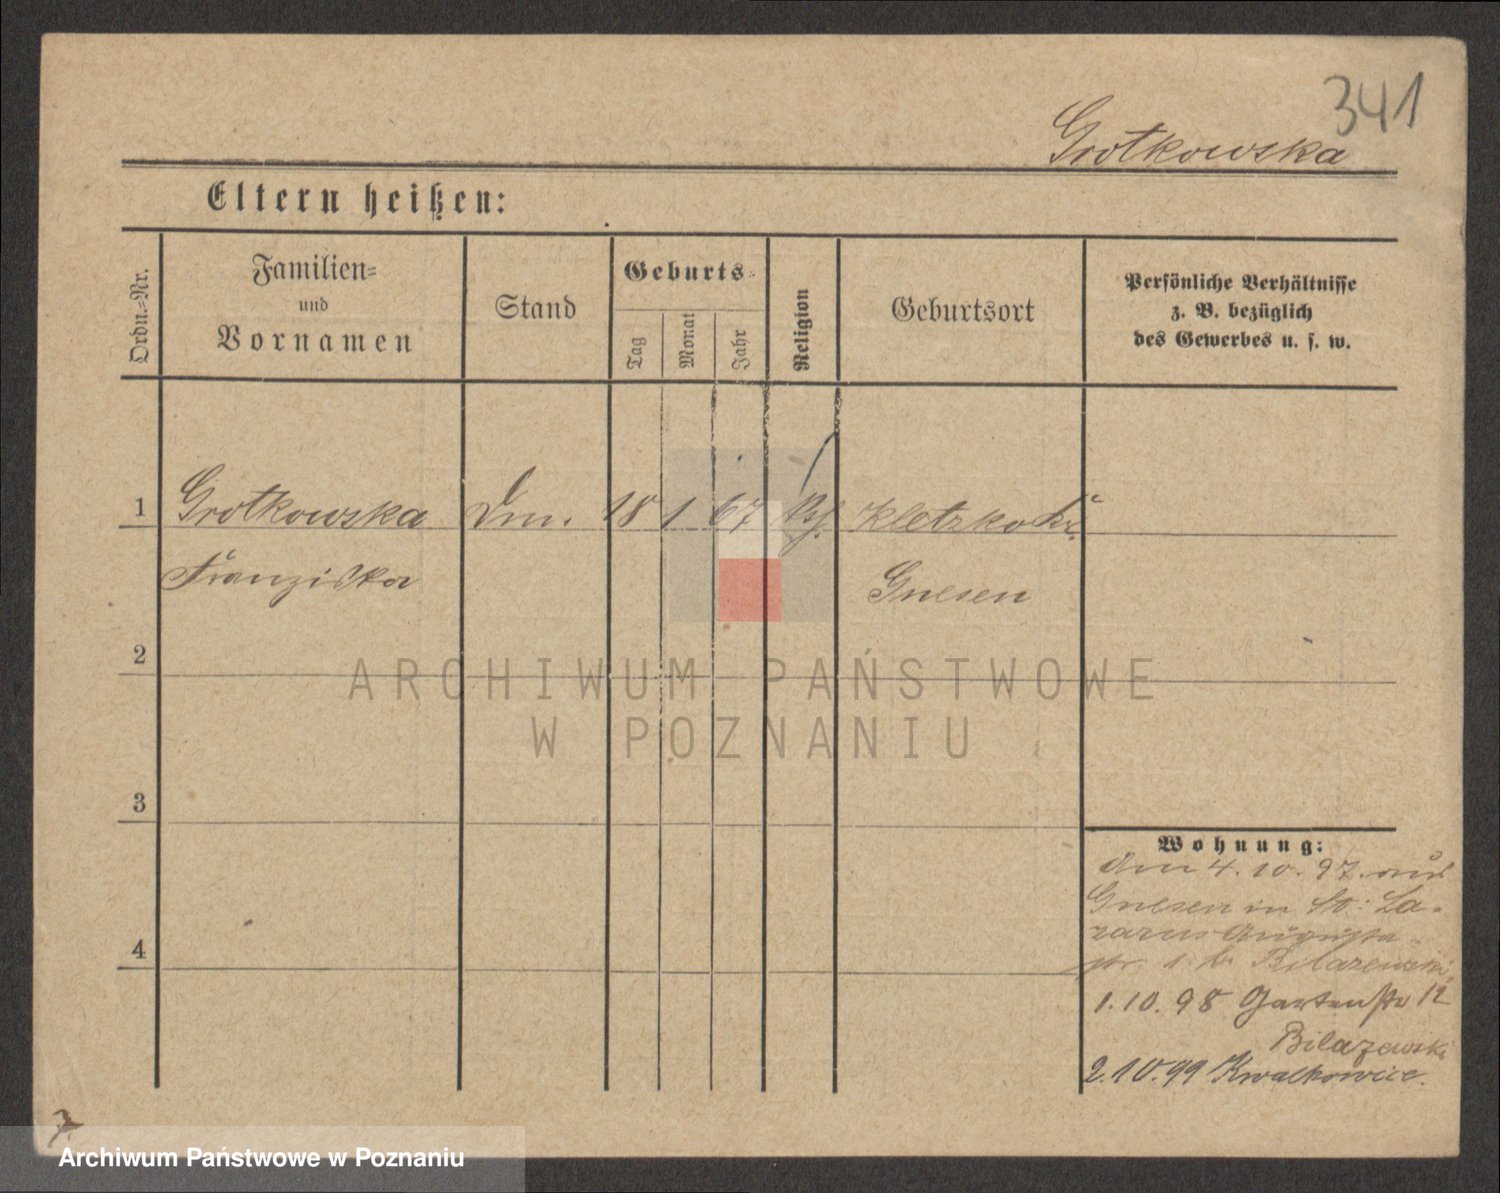 341
Grotkowska
Eltern heißen:
Ordn.-Nr.
Familien-
und
Vornamen
Stand
Geburts-
Tag
Monat
Jahr
Religion
Geburtsort
Persönliche Verhältnisse
z. B. bezüglich
des Gewerbes u. s. w.
1
Grotkowska
18 1 67
Kletzko Kr.
Franziska
Gnesen
2
ARCHIWUM PAŃSTWOWE
W POZNANIU
3
4
Wohnung:
Am 4. 10. 97. aus
Gnesen in St: La-
zarus Augusta-
str. 1. b. Bilazewski
1. 10. 98 Gartenstr 12
Bilazewski
2. 10. 99 Kwalkowice.
Archiwum Państwowe w Poznaniu